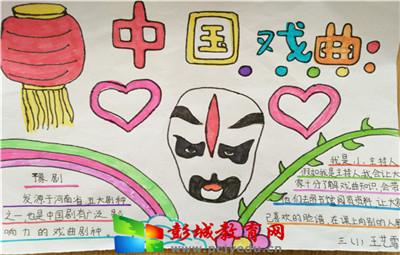 中国戏曲
豫剧
发源于河南省,五大剧种
之一,也是中国剧有广泛影
响力的戏曲剧种。
我是小主持人
假如我是主持人我会让大
家十分了解戏曲知识,会带
他们去图书馆阅资料,让大家
己喜欢的脸谱,在课上向别的人
三(1)王艺霏
彭城教育网
www.pcjyedu.cn